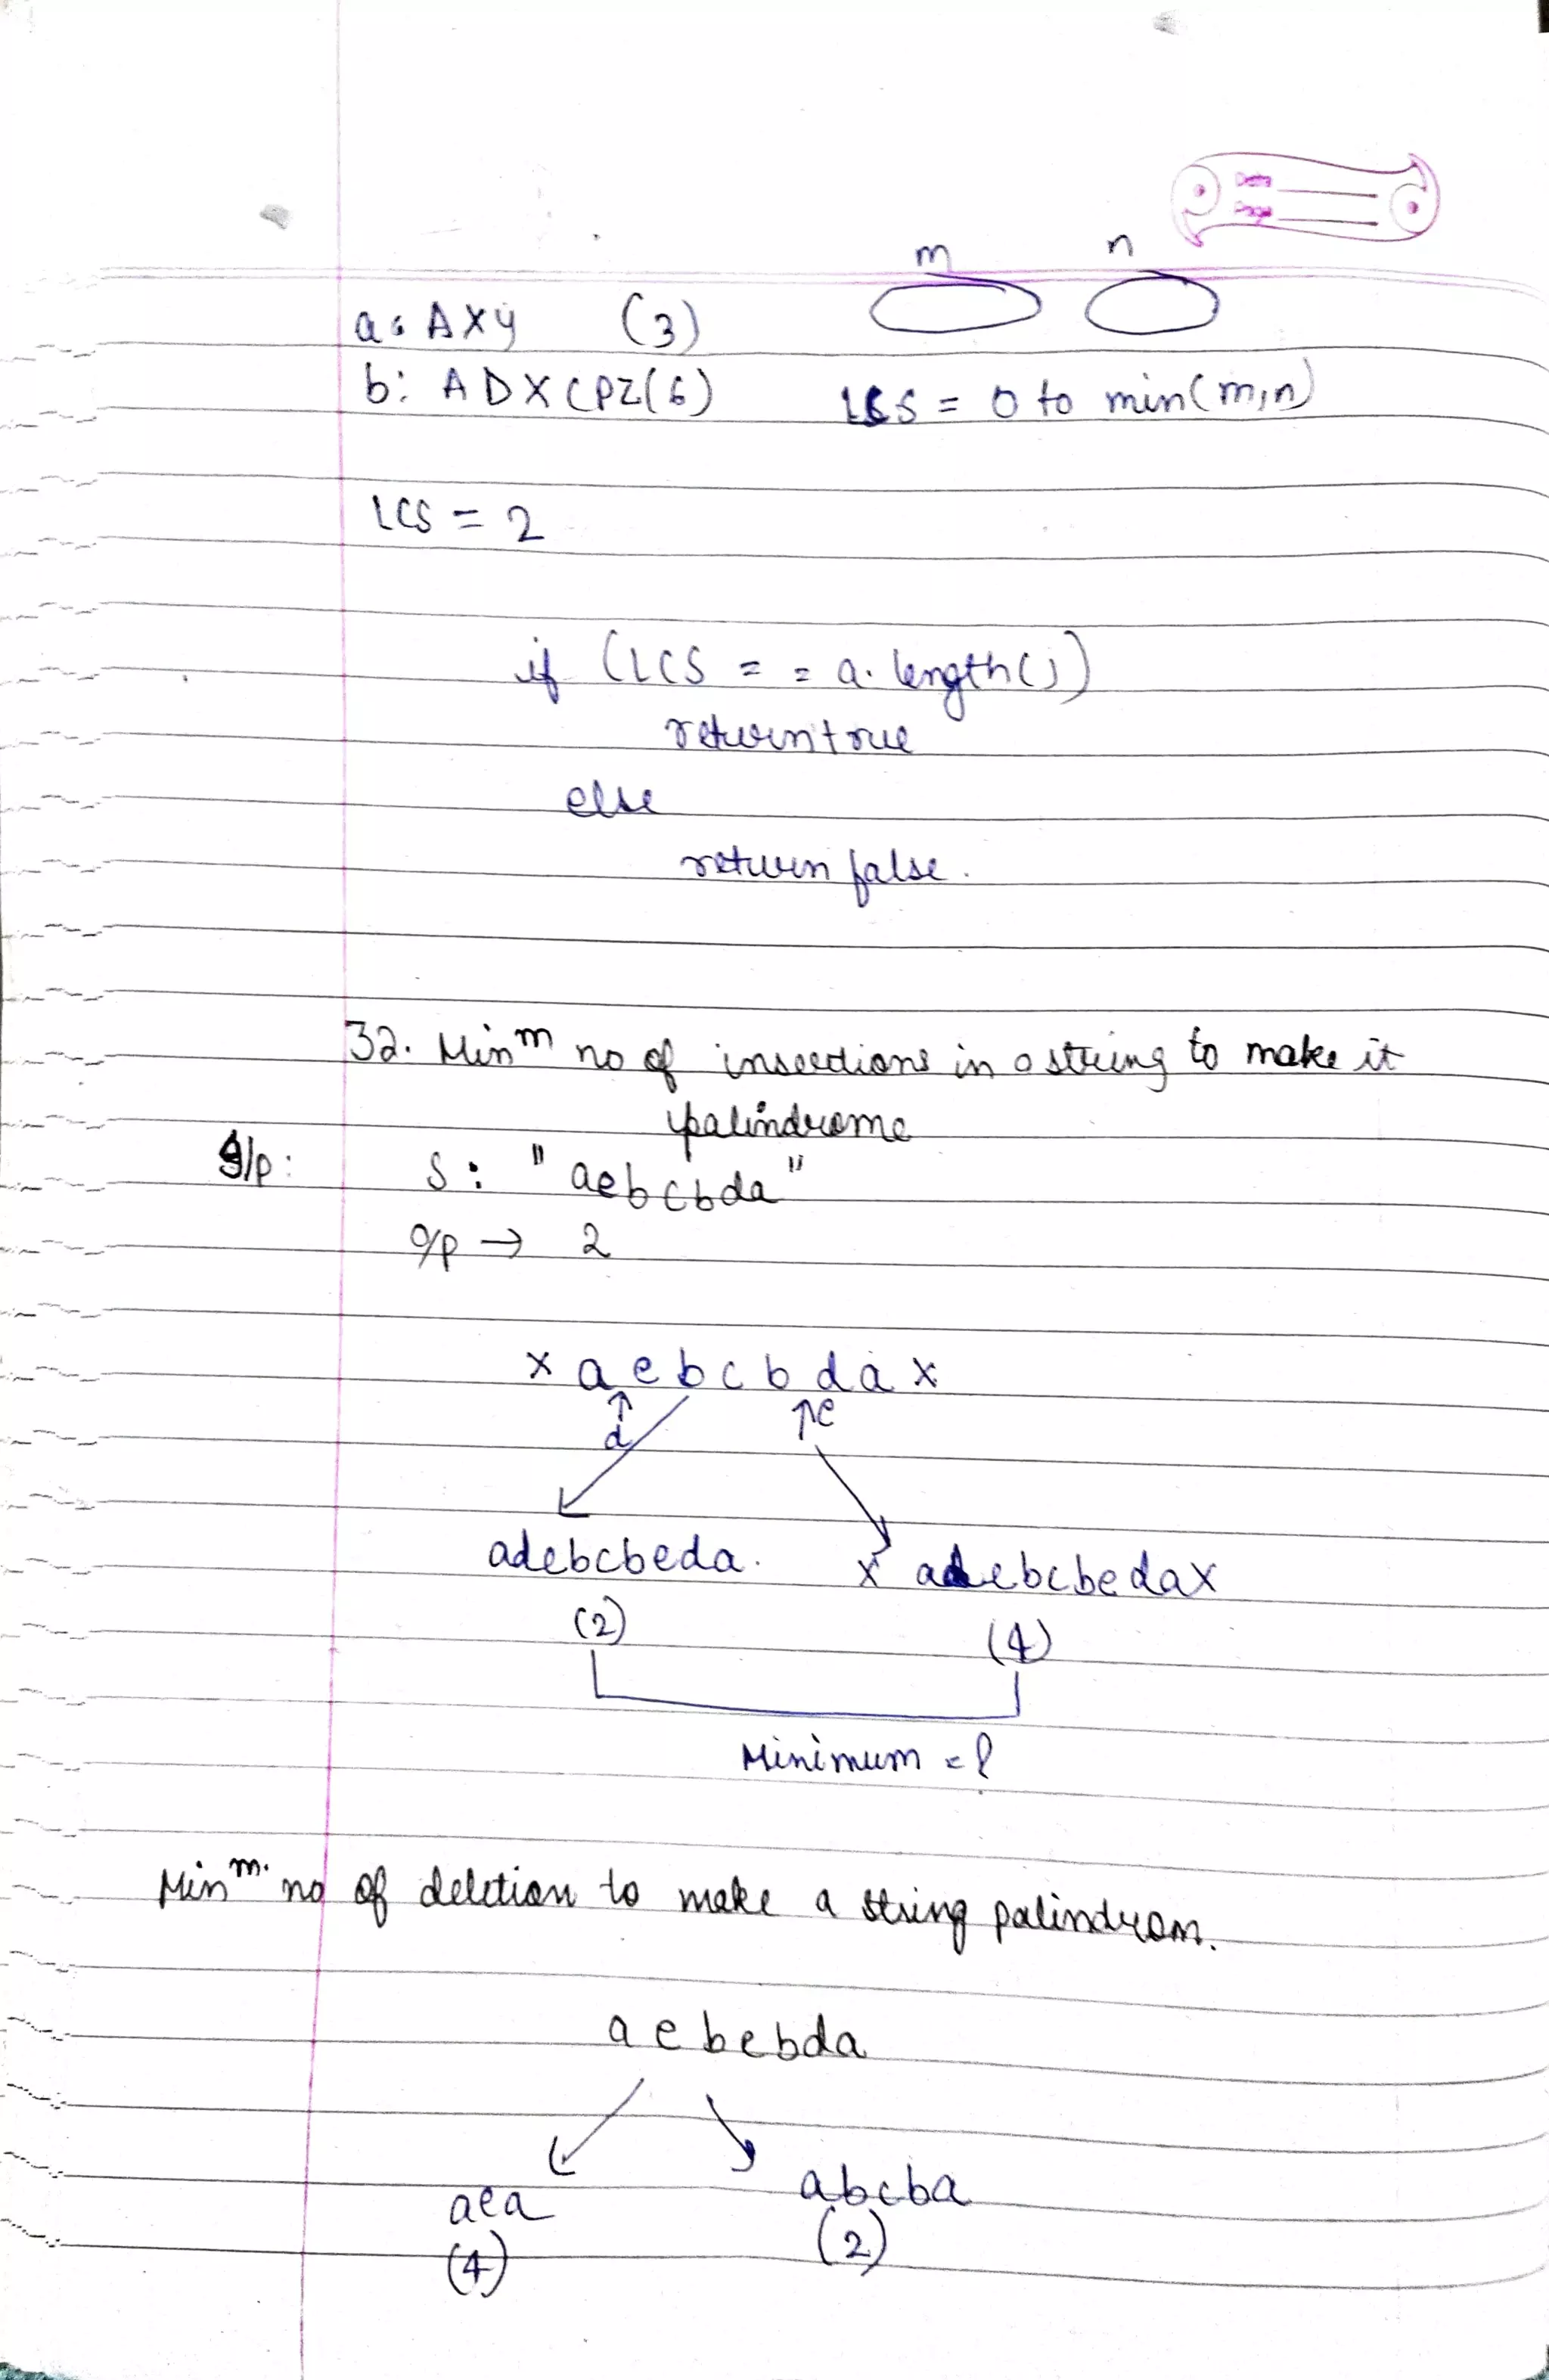 Date
Page
m n
a: AXY (3)
b: ADXCPZ(6) LCS = 0 to min(m,n)
LCS = 2
if (LCS = = a. length())
return true
else
return false.
32. Minm no of insertions in a string to make it
palindrome
I/p: S: "aebcbda"
O/p → 2
x a e b c b d a x
d e
adebcbeda. x adebcbedax
(2) (4)
Minimum = ?
Minm. no of deletion to make a string palindrom.
a e b e b d a
aea abcba
(4) (2)